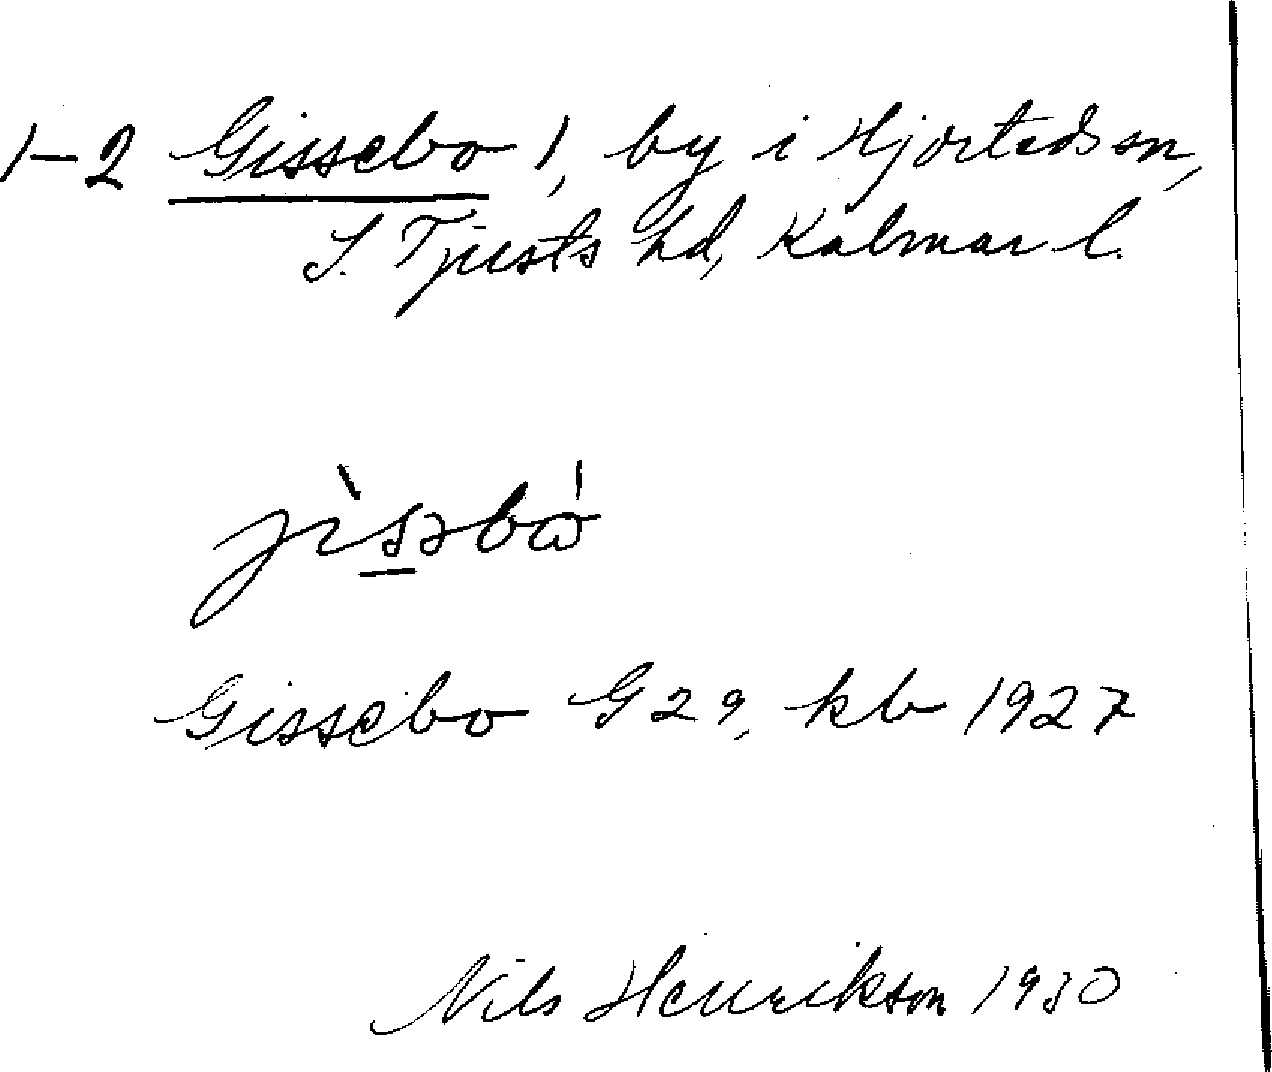 1-2 Gissebo 1, by i Hjorteds sn,
S. Tjusts hd, Kalmar l.
jìsəbὼ
Gissebo G 29, kb 1927
Nils Henrikson 1930